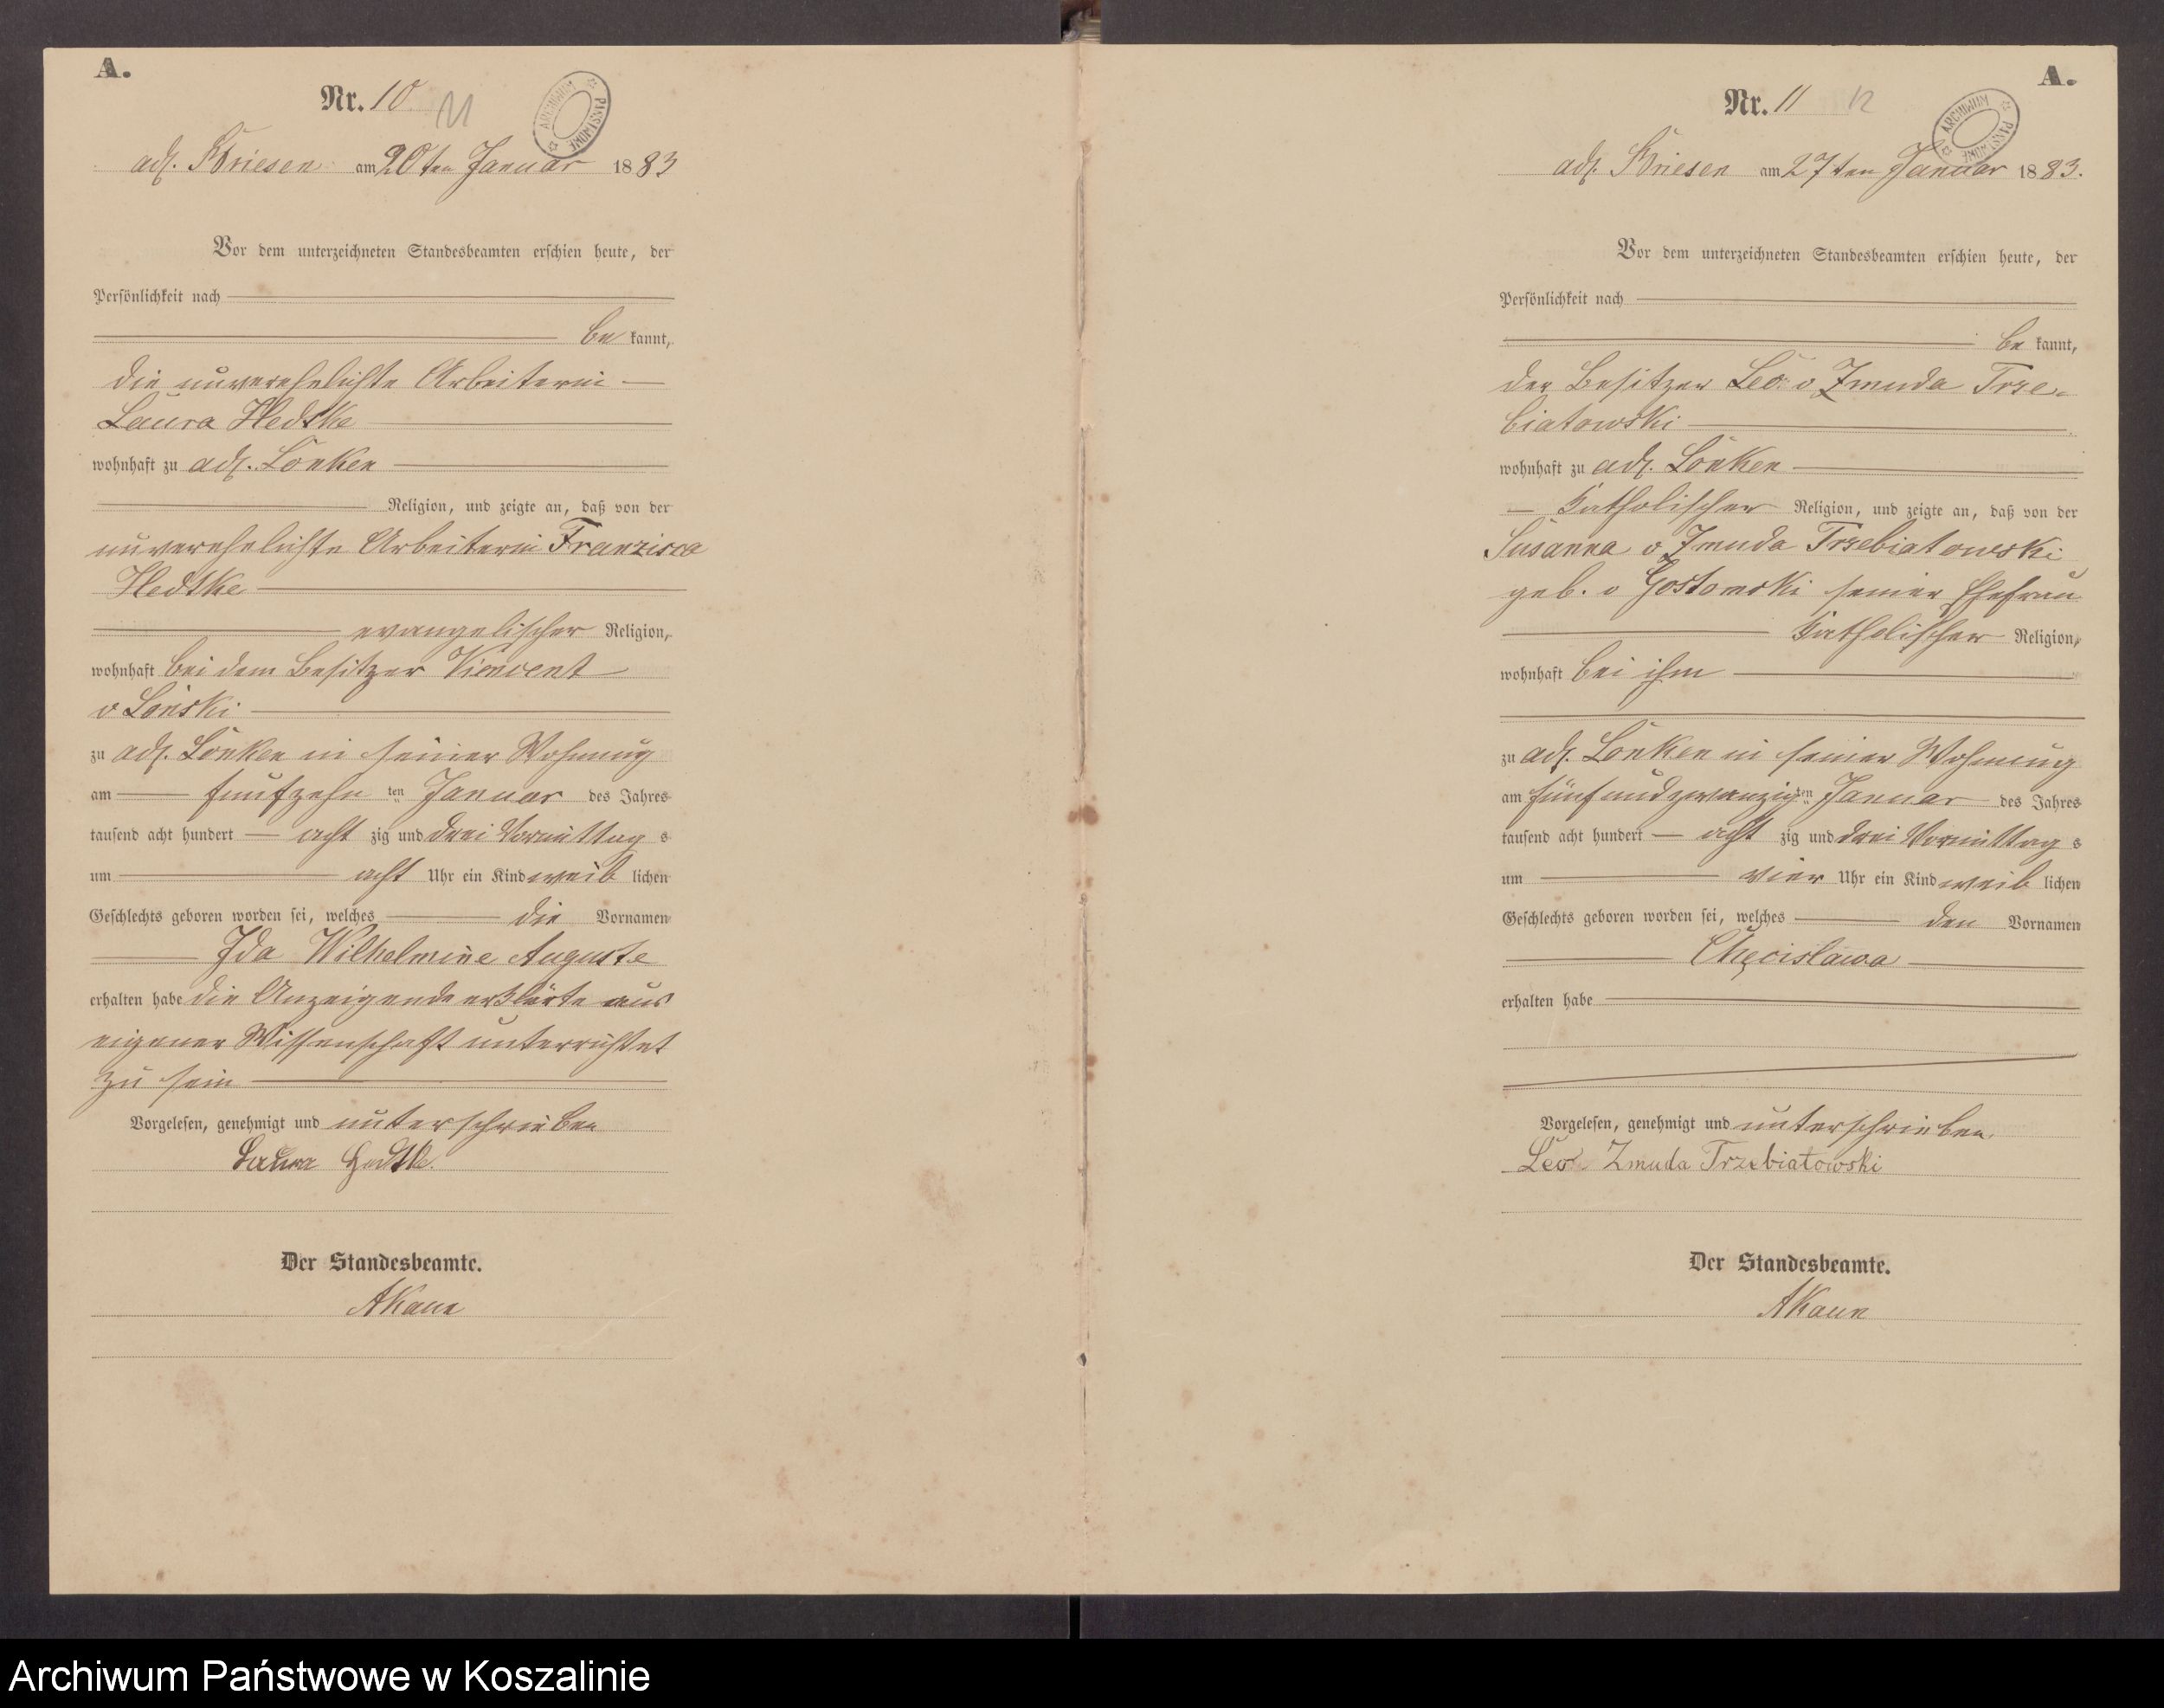 A.
Nr. 10
11
ARCHIWUM PAŃSTWOWE
adl. Briesen am 20ten Januar 1883
Vor dem unterzeichneten Standesbeamten erschien heute, der
Persönlichkeit nach
be kannt,
die unverehelichte Arbeiterin
Laura Hedtke
wohnhaft zu adl. Lonken
Religion, und zeigte an, daß von der
unverehelichte Arbeiterin Franzisca
Hedtke
evangelischer Religion,
wohnhaft bei dem Besitzer Vincent
v Lonski
zu adl. Lonken in seiner Wohnung
am funfzehn ten Januar des Jahres
tausend acht hundert acht zig und drei Vormittag s
um acht Uhr ein Kind weib lichen
Geschlechts geboren worden sei, welches die Vornamen
Ida Wilhelmine Auguste
erhalten habe die Anzeigende erklärte aus
eigener Wissenschaft unterrichtet
zu sein
Vorgelesen, genehmigt und unterschrieben
Laura Hedtke.
Der Standesbeamte.
AKaun
A.
Nr. 11
12
ARCHIWUM PAŃSTWOWE
adl. Briesen am 27ten Januar 1883.
Vor dem unterzeichneten Standesbeamten erschien heute, der
Persönlichkeit nach
be kannt,
der Besitzer Leo v Zmuda Trze-
biatowski
wohnhaft zu adl. Lonken
Katholischer Religion, und zeigte an, daß von der
Susanna v Zmuda Trzebiatowski
geb. v Gostomski seiner Ehefrau
Katholischer Religion,
wohnhaft bei ihm
zu adl. Lonken in seiner Wohnung
am fünfundzwanzig ten Januar des Jahres
tausend acht hundert acht zig und drei Vormittag s
um vier Uhr ein Kind weib lichen
Geschlechts geboren worden sei, welches den Vornamen
erhalten habe
Vorgelesen, genehmigt und unterschrieben.
Leo Zmuda Trzebiatowski
Der Standesbeamte.
AKaun
Archiwum Państwowe w Koszalinie